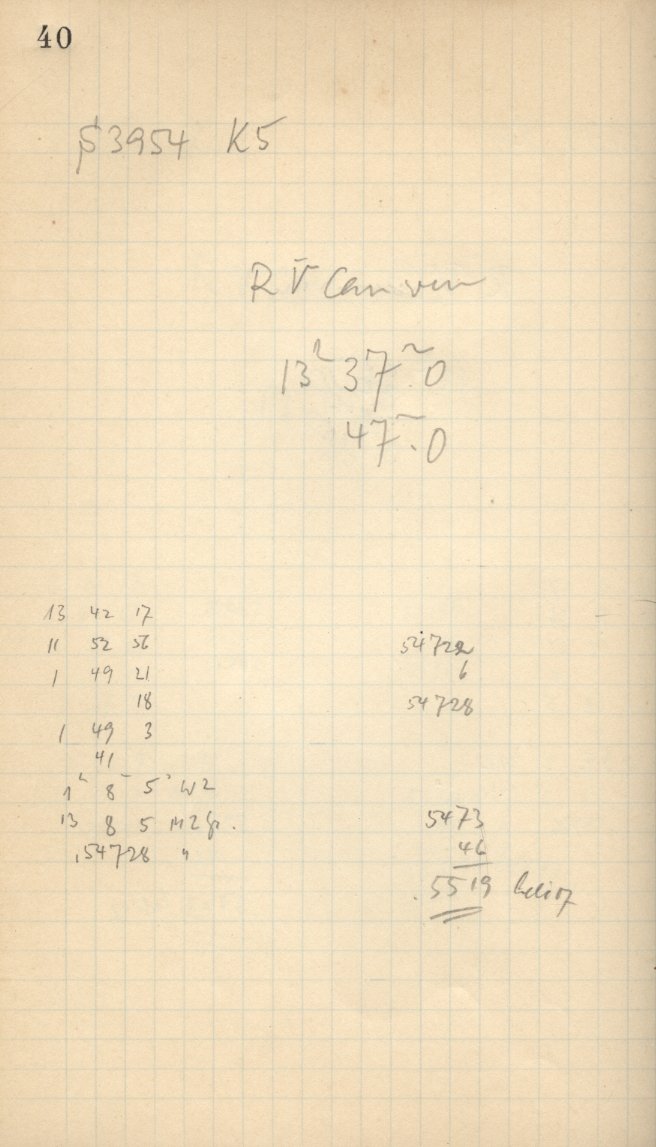 40
S 3954 K5
R V Can ven
13ʰ 37ᵐ.0
47ᵐ.0
13 42 17
11 52 56
1 49 21
18
1 49 3
41
1ʰ 8ᵐ 5ˢ WZ
13 8 5 MZ Gr.
,54728 "
54722
6
54728
5473
46
.5519 helioz